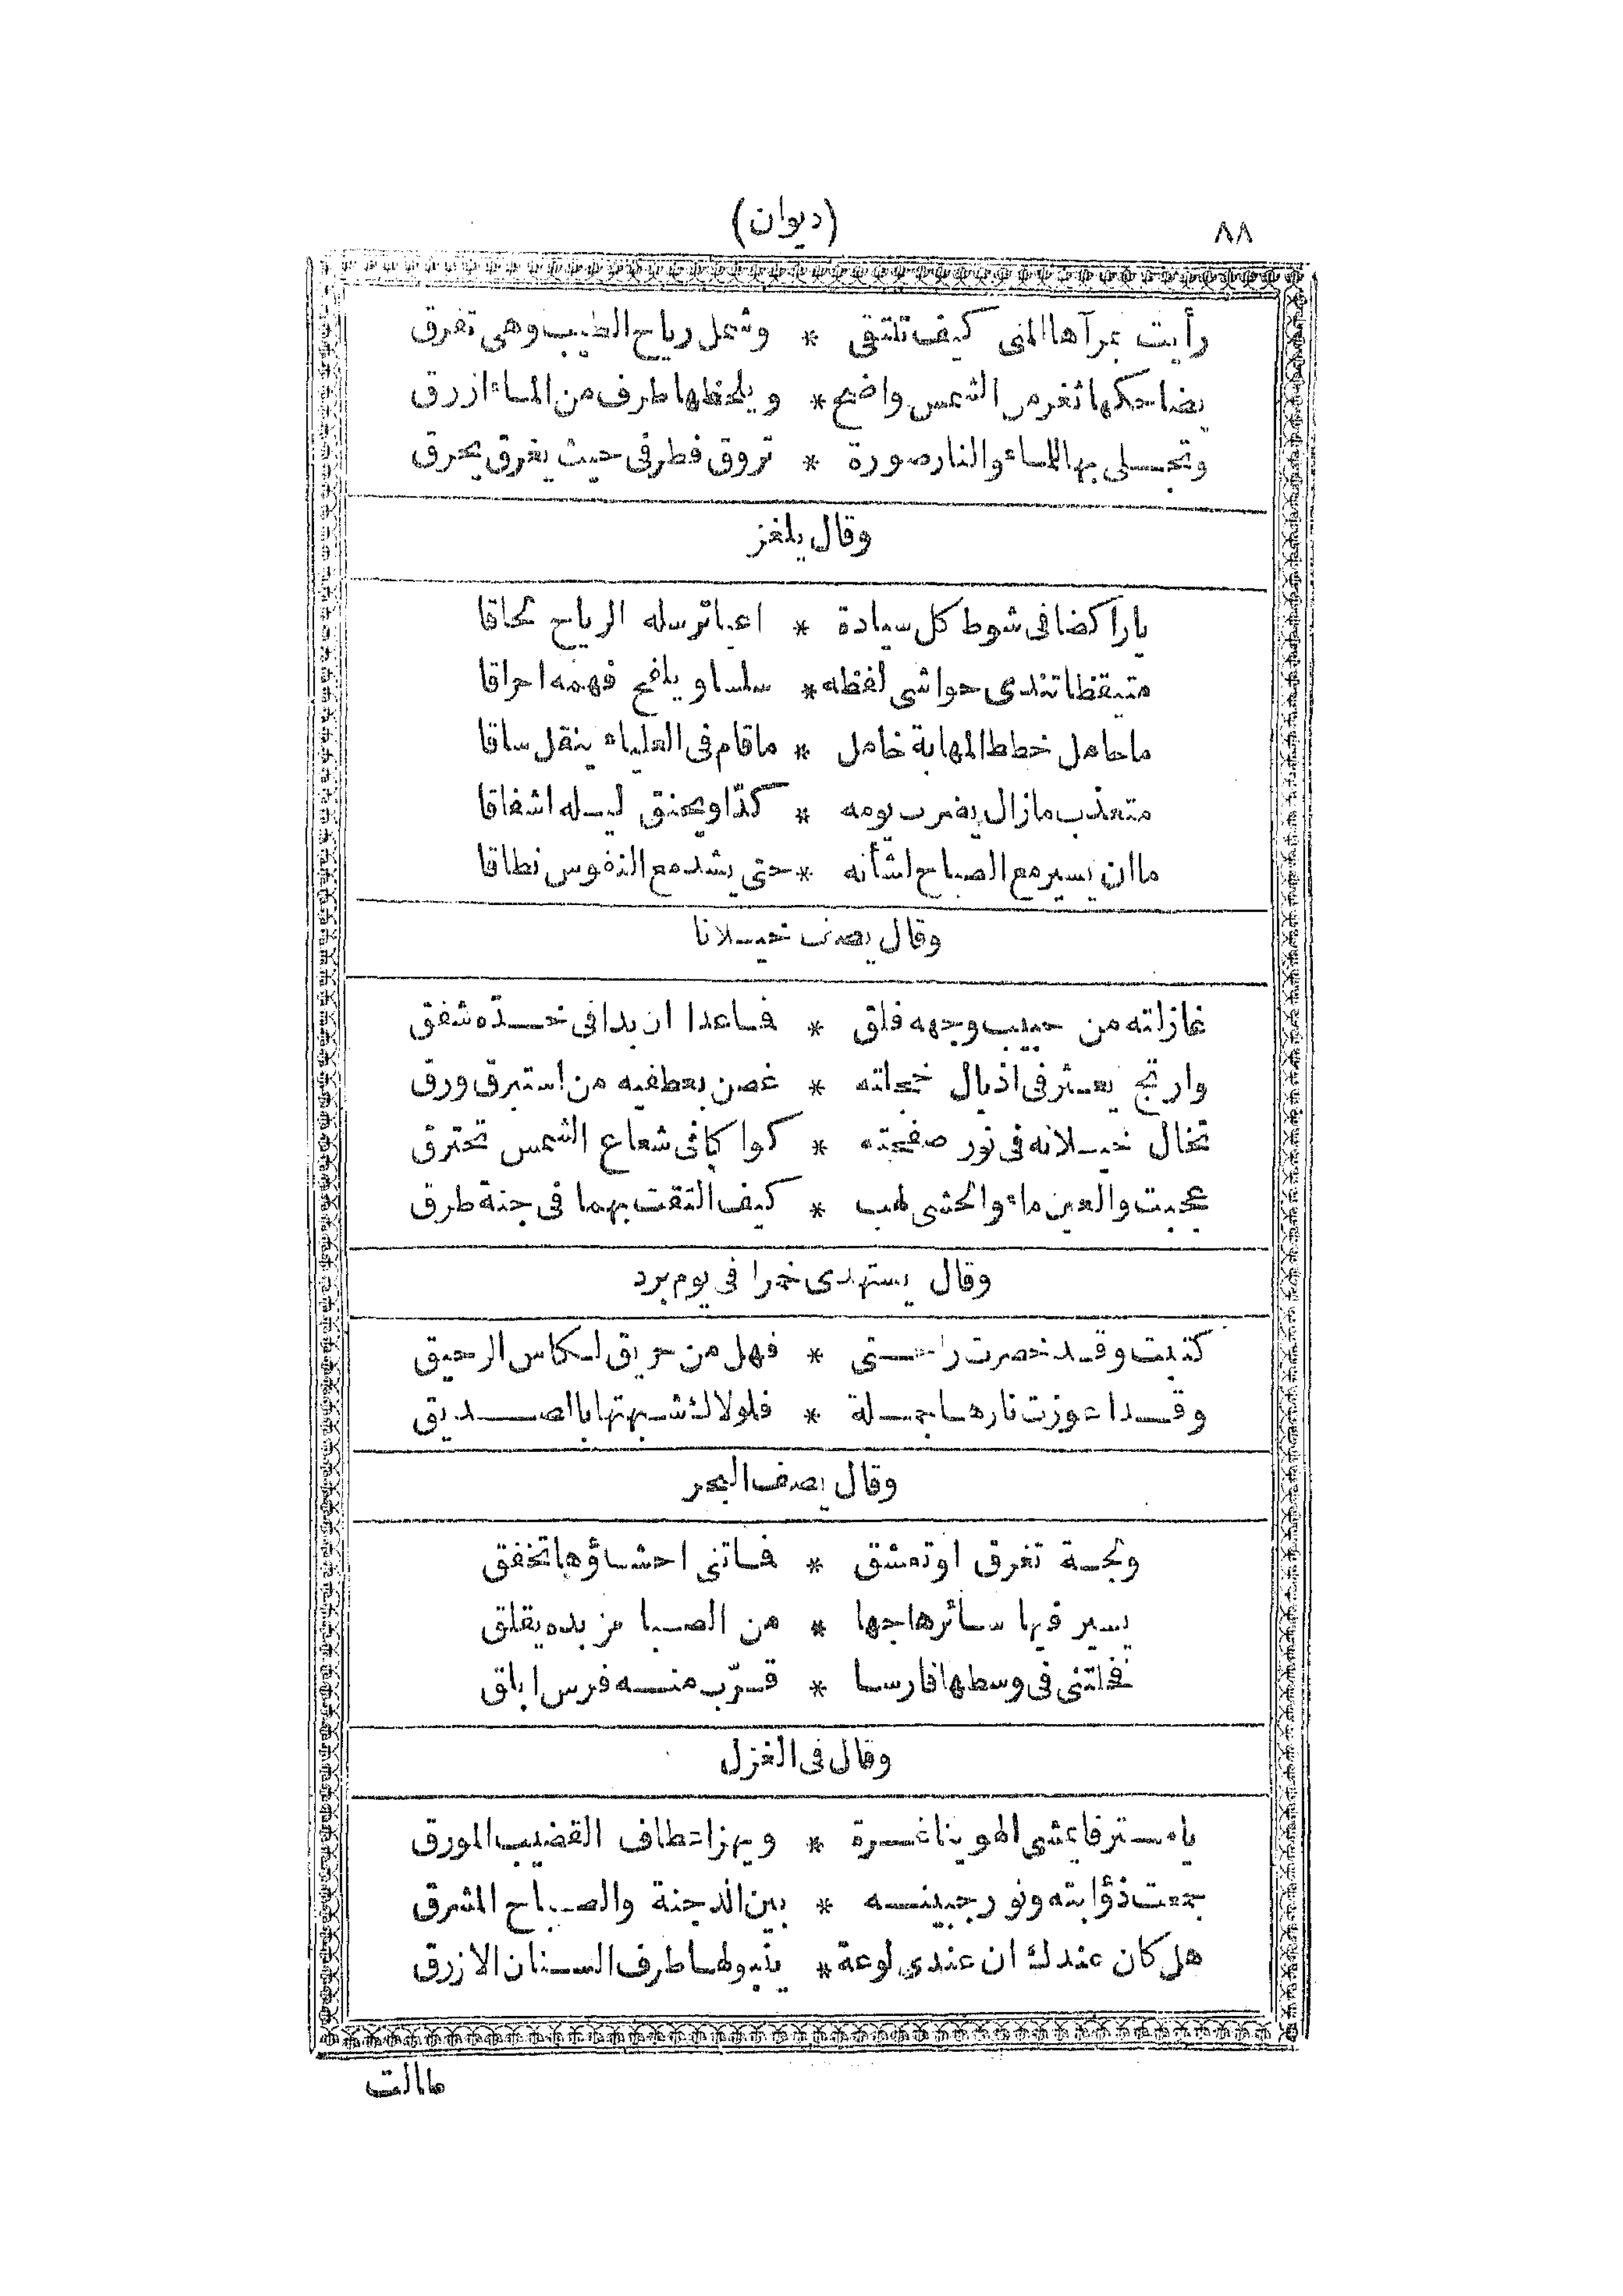 ٨٨
(ديوان)
رأيت بمرآها المنى كيف تلتقى * وشمل رياح الطيب وهى تفرق
يضاحكها ثغر من الشمس واضح * ويلحظها طرف من الماء ازرق
وتجلى بها للماء والنار صورة * تروق فطرفى حيث يغرق يحرق
وقال يلغز
يا راكضا فى شوط كل سيادة * اعيا ترسله الرياح لحاقا
متيقظا تندى حواشى لفظه * سلسا ويلفح فهمه احراقا
ما حامل خطط المهابة خامل * ما قام فى العلياء ينقل ساقا
متعذب مازال يضرب يومه * كدّا ويخنق ليله اشفاقا
ما ان يسير مع الصباح لشأنه * حتى يشد مع النفوس نطاقا
وقال يصف خيلانا
غازلته من حبيب وجهه فلق * فما عدا ان بدا فى خدّه شفق
وارتج يعثر فى اذيال خجلته * غصن بعطفيه من استبرق ورق
تخال خيلانه فى نور صفحته * كواكبا فى شعاع الشمس تحترق
عجبت والعين ماء والحشى لهب * كيف التقت بهما فى جنة طرق
وقال يستهدى خمرا فى يوم برد
كتبت وقد خصرت راحتى * فهل من حريق لكاس الرحيق
وقد اعوزت نارها جملة * فلولاك شبهتها بالصديق
وقال يصف البحر
ولجة تفرق او تعشق * فما تنى احشاؤها تخفق
يسير فيها سائرها جها * من الصبا مزبده يقلق
فخلتنى فى وسطها فارسا * قرّب منه فرس ابلق
وقال فى الغزل
يا مسترفا يمشى الهوينا غرة * ويهز اعطاف القضيب المورق
جمعت ذؤابته ونور جبينه * بين الدجنة والصباح المشرق
هل كان عندك ان عندى لوعة * ينبو لها طرف السنان الازرق
ما الت